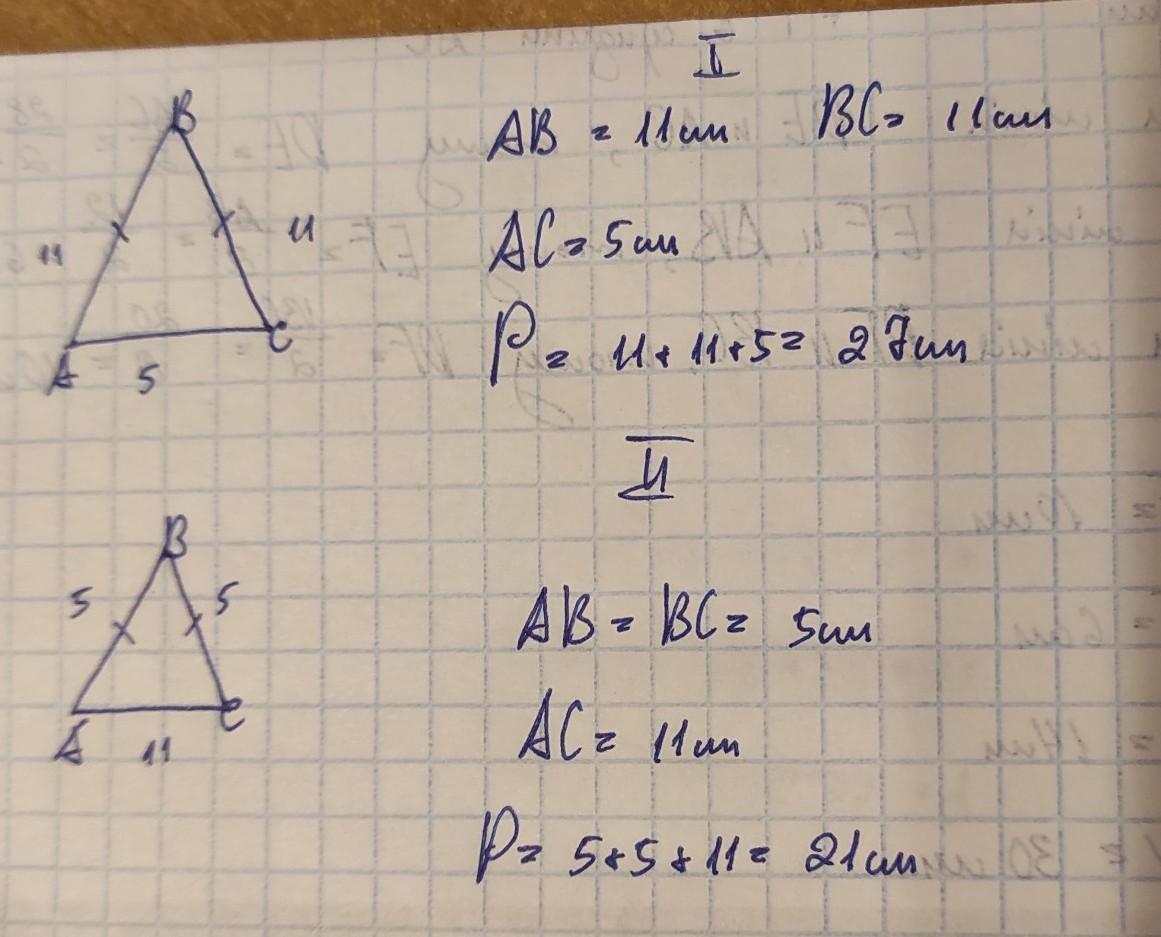 I
B
AB = 11см BC = 11см
11 11
AC = 5см
A C
5
P = 11 + 11 + 5 = 27см
II
B
5 5
AB = BC = 5см
A C
11
AC = 11см
P = 5 + 5 + 11 = 21см